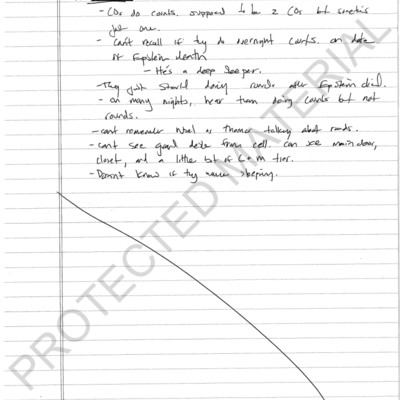 - COs do counts. supposed to be 2 COs but sometimes
just one.
- Can't recall if they do overnight counts. on date
of Epstein death
- He's a deep sleeper.
- They just started doing rounds after Epstein died.
- on many nights, hear them doing counts but not
rounds.
- can't remember Noel or Thomas talking about rounds.
- can't see guard desk from cell. can see main door,
closet, and a little bit of L + M tier.
- Doesn't know if they were sleeping.
PROTECTED MATERIAL